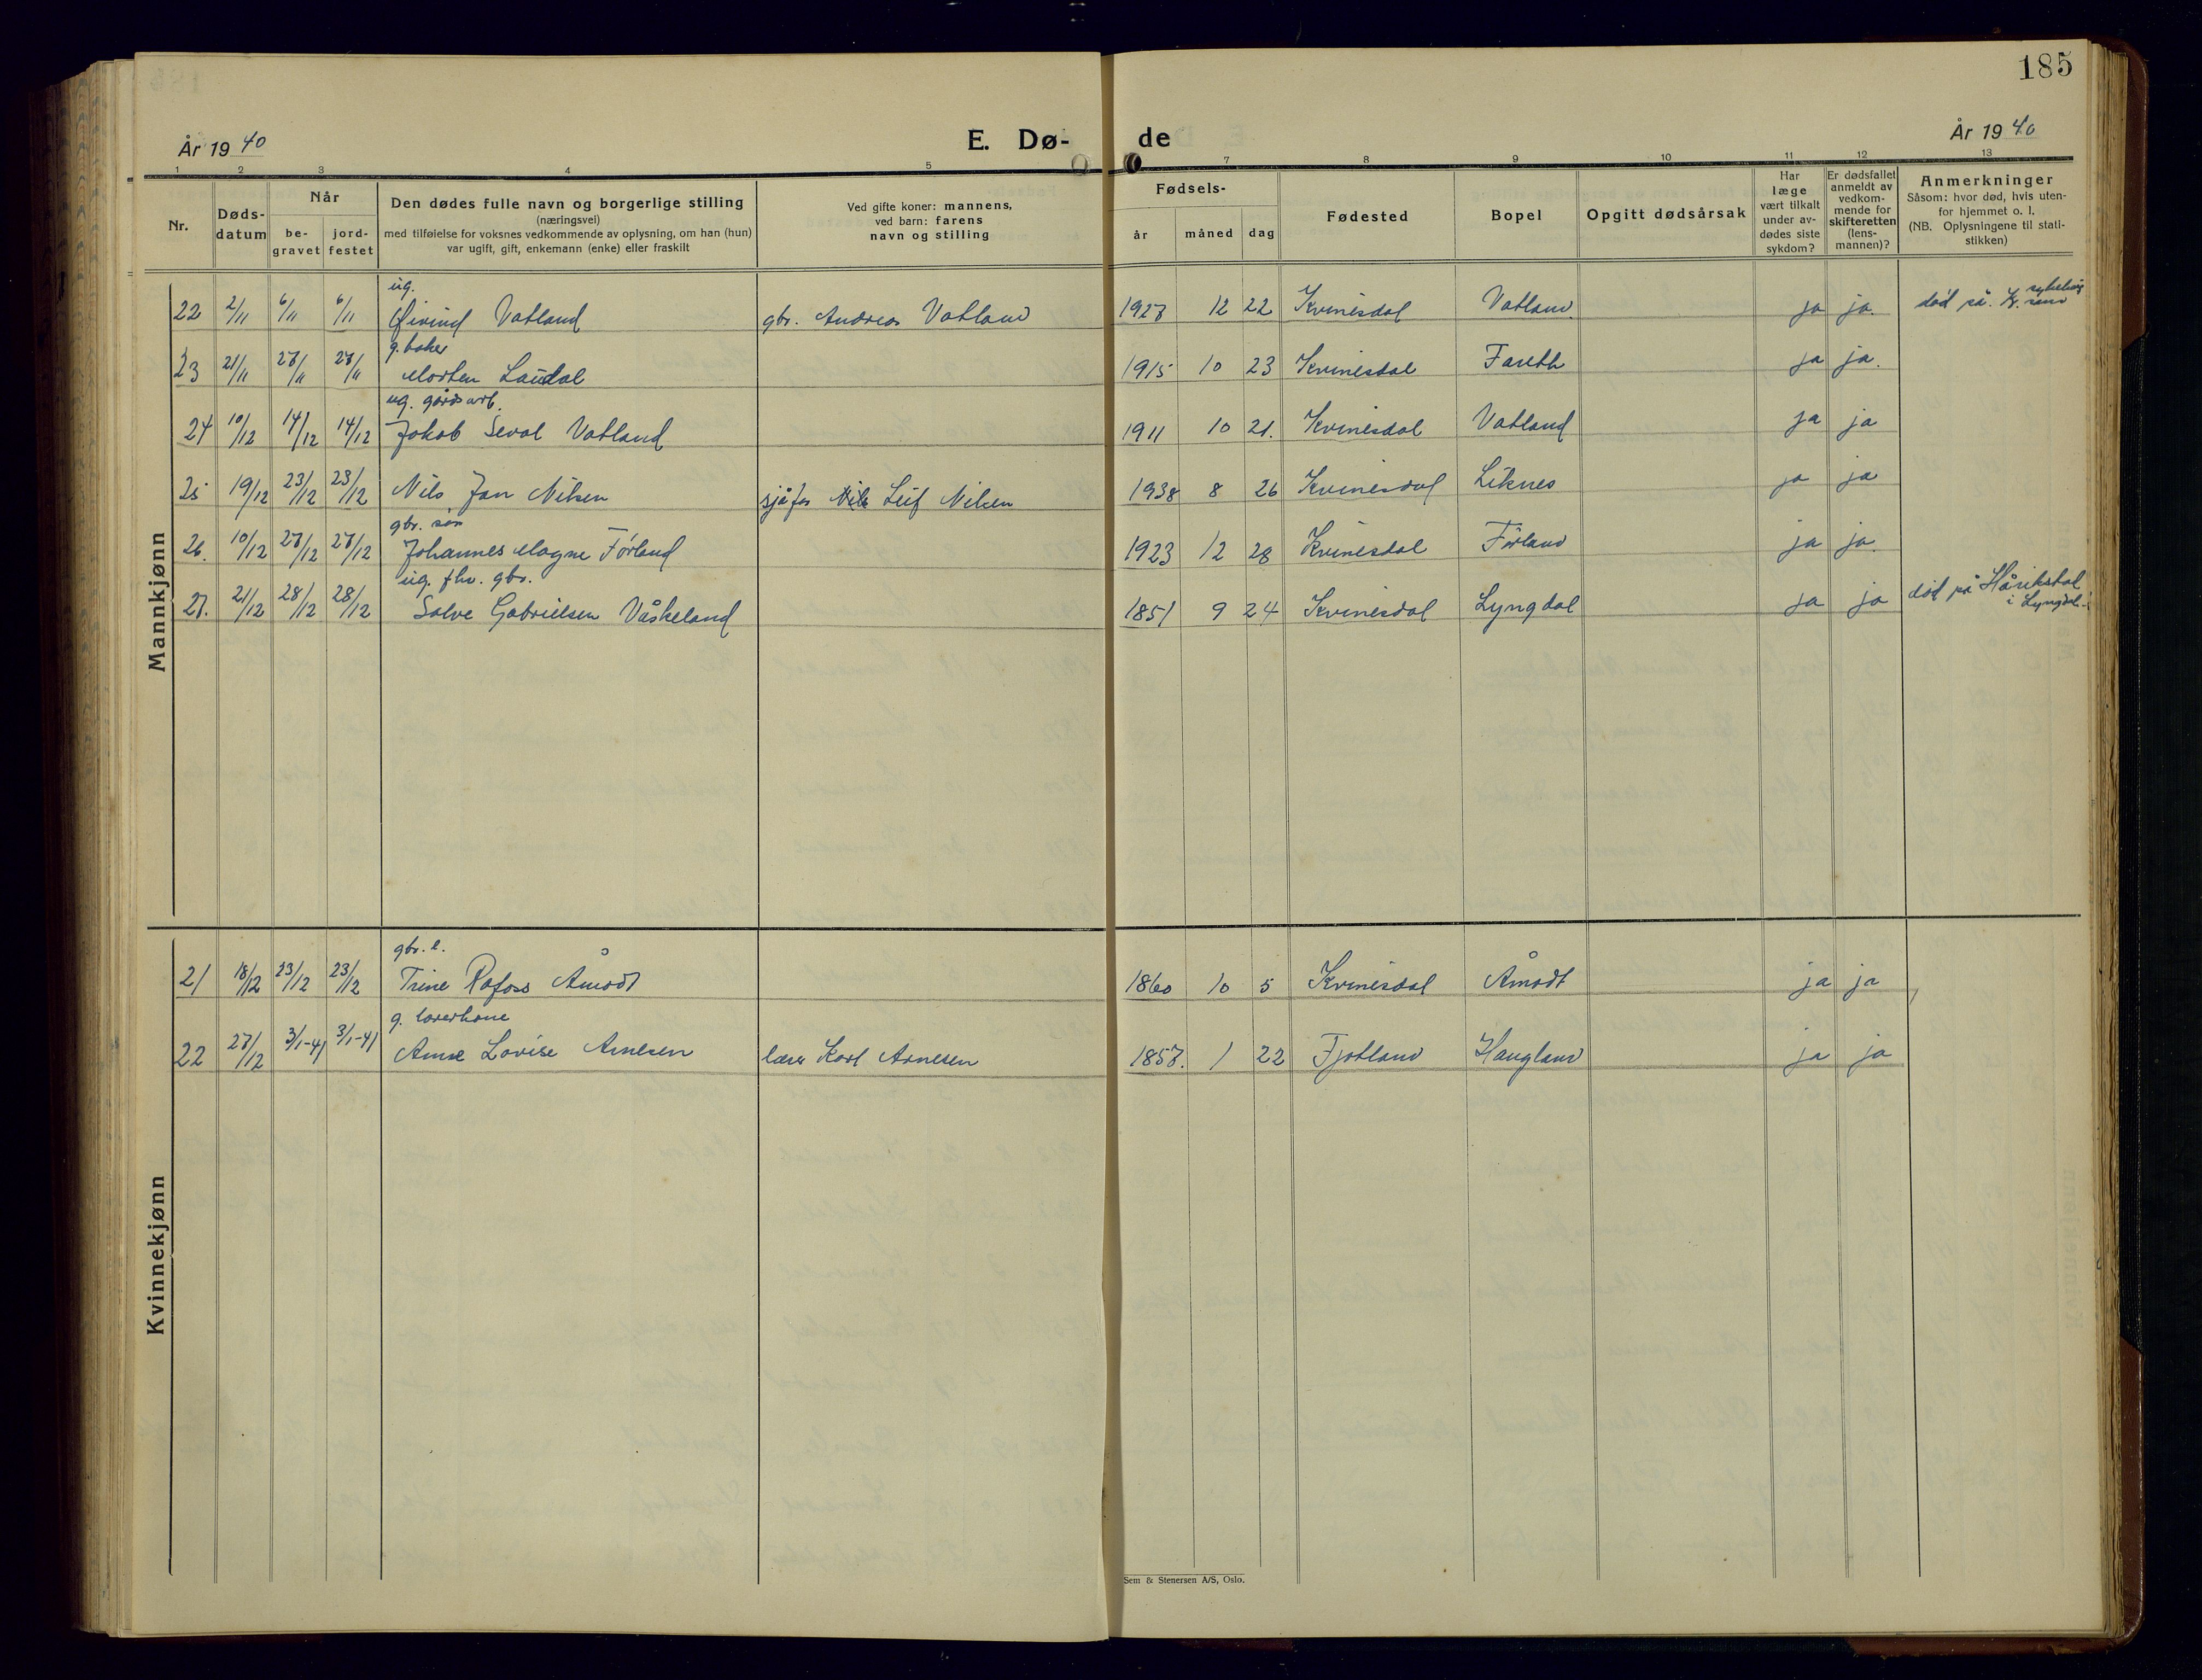 185
År 1940
E. Dø-
de
År 1940
1 2 3 4 5 7 8 9 10 11 12 13
Nr.
Døds-
datum
Når
be-
gravet
jord-
festet
Den dødes fulle navn og borgerlige stilling
(næringsvei)
med tilføielse for voksnes vedkommende av oplysning, om han (hun)
var ugift, gift, enkemann (enke) eller fraskilt
Ved gifte koner: mannens,
ved barn: farens
navn og stilling
Fødsels-
år
måned
dag
Fødested
Bopel
Opgitt dødsårsak
Har
læge
vært tilkalt
under av-
dødes siste
sykdom?
Er dødsfallet
anmeldt av
vedkom-
mende for
skifteretten
(lens-
mannen)?
Anmerkninger
Såsom: hvor død, hvis uten-
for hjemmet o. l.
(NB. Oplysningene til stati-
stikken)
Mannkjønn
ug.
22 2/11 6/11 6/11 Øivind Vatland gbr. Andreas Vatland 1927 12 22 Kvinesdal Vatland ja ja. død på
g. baker
23 21/11 27/11 27/11 Morten Laudal 1915 10 23 Kvinesdal Fareth ja ja.
ug. gårdsarb.
24 10/12 14/12 14/12 Jakob Seval Vatland 1911 10 21. Kvinesdal Vatland ja ja
25 19/12 23/12 23/12 Nils Jan Nilsen sjåfør Nils Leif Nilsen 1938 8 26 Kvinesdal Liknes ja ja
gbr. søn
26. 10/12 27/12 27/12 Johannes Magne Førland 1923 12 28 Kvinesdal Førland ja ja.
ug. fhv. gbr.
27. 21/12 28/12 28/12 Salve Gabrielsen Våskeland 1851 9 24 Kvinesdal Lyngdal ja ja død på Hårikstal
i Lyngdal
Kvinnekjønn
gbr. e.
21 18/12 23/12 23/12 Trine Rafoss Åmodt 1860 10 5 Kvinesdal Åmodt ja ja
g. lærerkone
22 27/12 3/1-41 3/1-41 Anne Lovise Arnesen lærer Karl Arnesen 1857. 1 22 Fjotland Haugland ja ja
Sem & Stenersen A/S, Oslo.